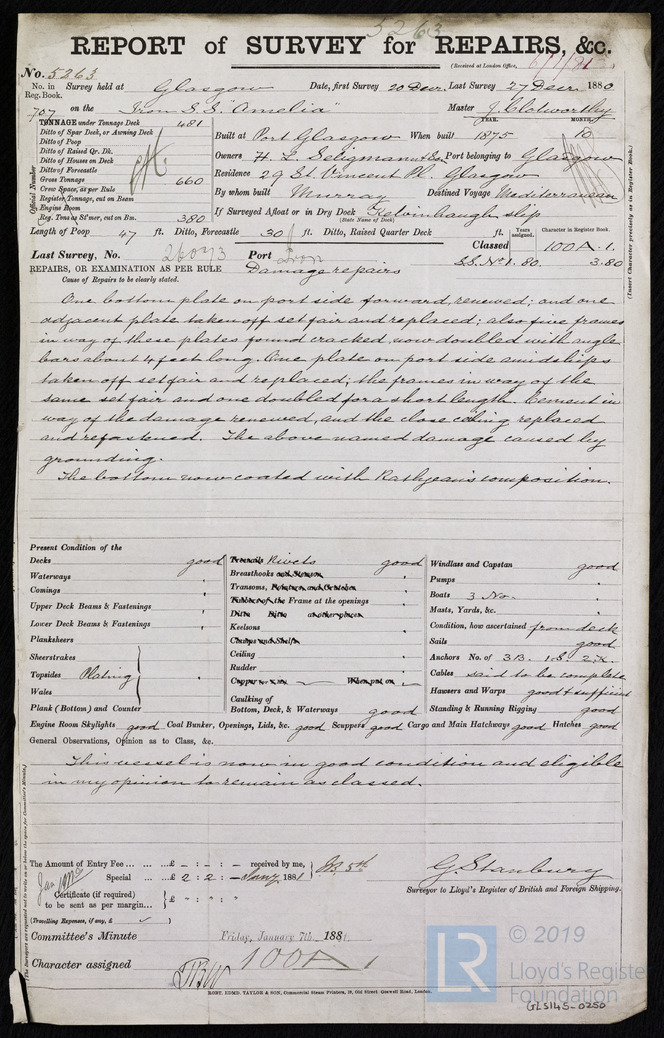 5263
REPORT of SURVEY for REPAIRS, &c.
(Received at London Office, 6/1/81)
No. 5263
No. in Reg. Book. Survey held at Glasgow Date, first Survey 20 Decr. Last Survey 27 Decr. 1880
707 on the Iron S.S. "Amelia" Master J. Clotworthy
TONNAGE under Tonnage Deck 481
Ditto of Spar Deck, or Awning Deck
Ditto of Poop
Ditto of Raised Qr. Dk.
Ditto of Houses on Deck
Ditto of Forecastle
Gross Tonnage 660
Crew Space, as per Rule
Register Tonnage, cut on Beam
Engine Room
Reg. Tons as St'mer, cut on Bm. 380
Official Number
YEAR. MONTH.
Built at Port Glasgow When built 1875 10
Owners H. L. Seligmann Esq. Port belonging to Glasgow
Residence 29 St. Vincent Pl. Glasgow
By whom built Murray Destined Voyage Mediterranean
If Surveyed Afloat or in Dry Dock Kelvinhaugh slip
(State Name of Dock)
Length of Poop 47 ft. Ditto, Forecastle 30 ft. Ditto, Raised Quarter Deck ft.
Years assigned. Character in Register Book.
Last Survey, No. 26073 Port Iron Classed 100A.1.
S.S. No 1. 80. 3.80
(Insert Character precisely as in Register Book.)
REPAIRS, OR EXAMINATION AS PER RULE Damage repairs
Cause of Repairs to be clearly stated.
One bottom plate on port side forward, renewed; and one
adjacent plate taken off set fair and replaced; also five frames
in way of these plates found cracked, now doubled with angle
bars about 4 feet long. One plate on port side amidships
taken off set fair and replaced; the frames in way of the
same set fair and one doubled for a short length. Cement in
way of the damage renewed, and the close ceiling replaced
and refastened. The above named damage caused by
grounding.
The bottom now coated with Rathjean's composition.
Present Condition of the
Decks good
Waterways "
Comings "
Upper Deck Beams & Fastenings "
Lower Deck Beams & Fastenings "
Planksheers
Sheerstrakes
Topsides Plating "
Wales
Plank (Bottom) and Counter
Treenails Rivets good
Breasthooks and Stemson "
Transoms, Pointers and Crutches "
Timbers of the Frame at the openings "
Ditto Ditto at other places
Keelsons "
Clamps and Shelfs
Ceiling "
Rudder "
Copper When put on
Caulking of
Bottom, Deck, & Waterways good
Windlass and Capstan good
Pumps "
Boats 3 No. "
Masts, Yards, &c. "
Condition, how ascertained from deck
Sails good
Anchors No. of 3B. 1S. 2K.
Cables said to be complete
Hawsers and Warps good & sufficient
Standing & Running Rigging good
Engine Room Skylights good Coal Bunker, Openings, Lids, &c. good Scuppers good Cargo and Main Hatchways good Hatches good
General Observations, Opinion as to Class, &c.
This vessel is now in good condition and eligible
in my opinion to remain as classed.
(The Surveyors are requested not to write on or below the space for Committee's Minute.)
The Amount of Entry Fee £ - : - : - received by me,
Special £ 2 : 2 : - Jany. 1881
Certificate (if required)
to be sent as per margin £ " : " : "
(Travelling Expenses, if any, £ )
G. Stanbury
Surveyor to Lloyd's Register of British and Foreign Shipping.
Committee's Minute Friday, January 7th 1881.
Character assigned 100A1
ROBT. EDMD. TAYLOR & SON, Commercial Steam Printers, 19, Old Street, Goswell Road, London.
LR
© 2019
Lloyd's Register
Foundation
GLS145-0250